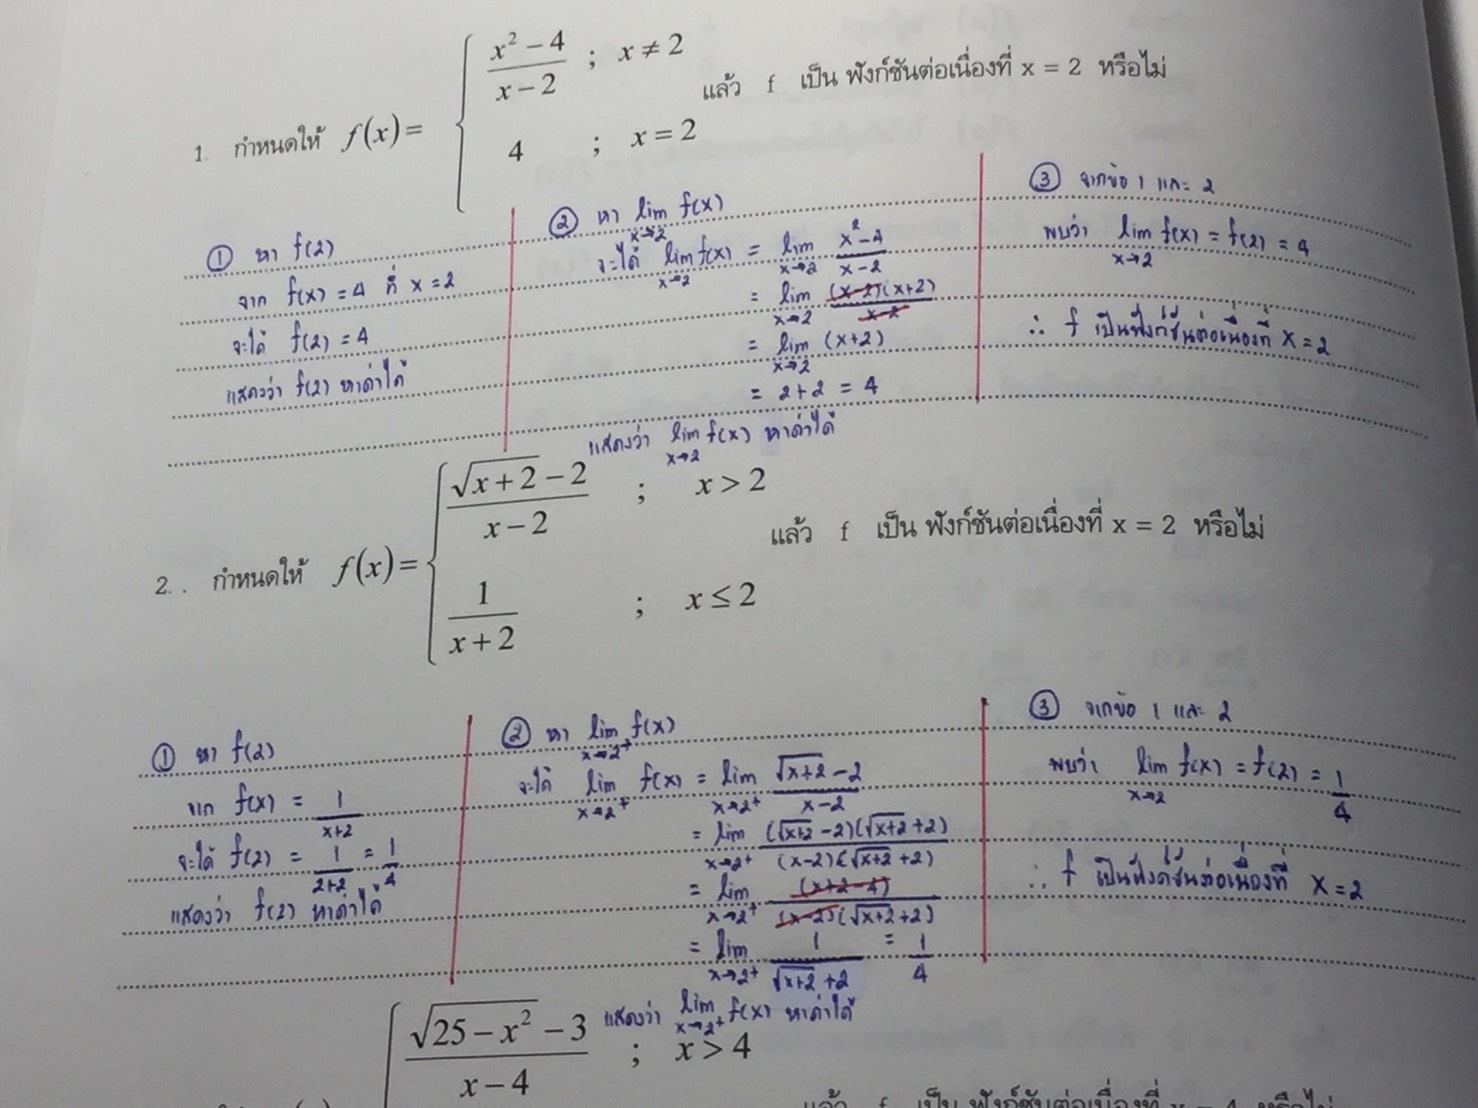 1. กำหนดให้ f(x) = { (x² − 4)/(x − 2) ; x ≠ 2
4 ; x = 2
แล้ว f เป็น ฟังก์ชันต่อเนื่องที่ x = 2 หรือไม่
① หา f(2)
จาก f(x) = 4 ที่ x = 2
จะได้ f(2) = 4
แสดงว่า f(2) หาค่าได้
② หา lim x→2 f(x)
จะได้ lim x→2 f(x) = lim x→2 (x² − 4)/(x − 2)
= lim x→2 (x − 2)(x + 2)/(x − 2)
= lim x→2 (x + 2)
= 2 + 2 = 4
แสดงว่า lim x→2 f(x) หาค่าได้
③ จากข้อ 1 และ 2
พบว่า lim x→2 f(x) = f(2) = 4
∴ f เป็นฟังก์ชันต่อเนื่องที่ x = 2
2. . กำหนดให้ f(x) = { (√(x + 2) − 2)/(x − 2) ; x > 2
1/(x + 2) ; x ≤ 2
แล้ว f เป็น ฟังก์ชันต่อเนื่องที่ x = 2 หรือไม่
① หา f(2)
จาก f(x) = 1/(x+2)
จะได้ f(2) = 1/(2+2) = 1/4
แสดงว่า f(2) หาค่าได้
② หา lim x→2⁺ f(x)
จะได้ lim x→2⁺ f(x) = lim x→2⁺ (√(x+2) − 2)/(x − 2)
= lim x→2⁺ (√(x+2) − 2)(√(x+2) + 2)/(x−2)(√(x+2) + 2)
= lim x→2⁺ (x+2−4)/(x−2)(√(x+2) + 2)
= lim x→2⁺ 1/(√(x+2) + 2) = 1/4
แสดงว่า lim x→2⁺ f(x) หาค่าได้
③ จากข้อ 1 และ 2
พบว่า lim x→2 f(x) = f(2) = 1/4
∴ f เป็นฟังก์ชันต่อเนื่องที่ x = 2
(√(25 − x²) − 3)/(x − 4) ; x > 4
แล้ว f เป็น ฟังก์ชันต่อเนื่องที่ x = 4 หรือไม่